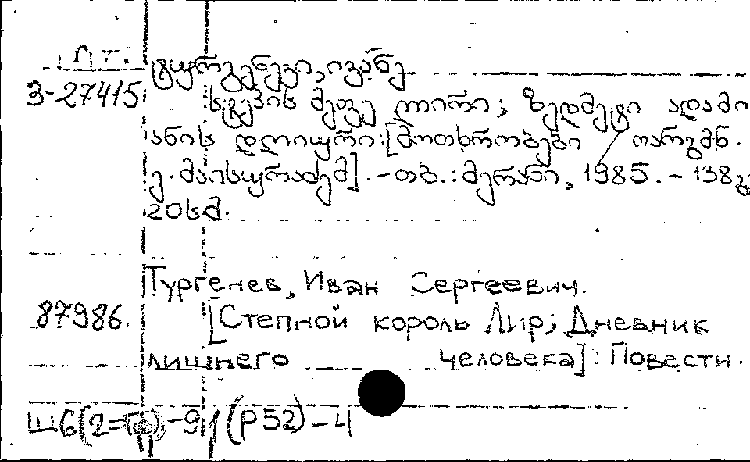 ტურგენევი, ივანე
З-27415 სტეპის მეფე ლირი; ზედმეტი ადამი
ანის დღიური: [მოთხრობები / თარგმნ.
ე. მაისურაძემ]. - თბ.: მერანი, 1985. - 138გვ.
20სმ.
Тургенев, Иван Сергеевич.
87986. [Степной король Лир; Дневник
лишнего человека]: Повести.
Ш6(2= -91(Р52)-4